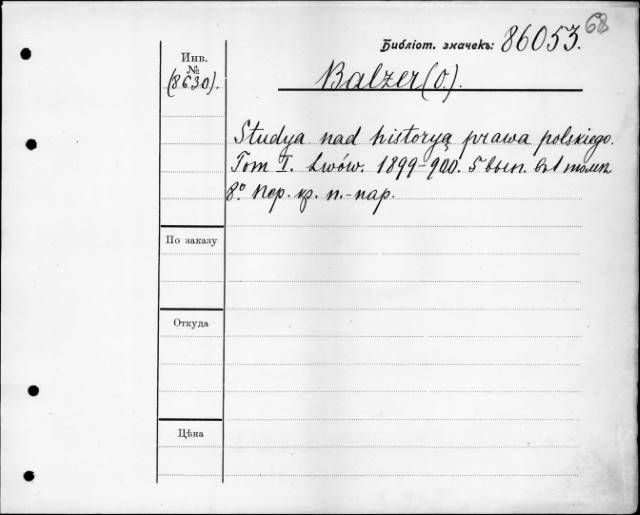 68
Библіот. значекъ: 86053.
Инв.
№
(8630).
Balzer (O.).
Studya nad historyą prawa polskiego.
Tom I. Lwów. 1899-900. 5 вып. въ 1 томѣ
8°. Пер. кр. п.-пар.
По заказу
Откуда
Цѣна